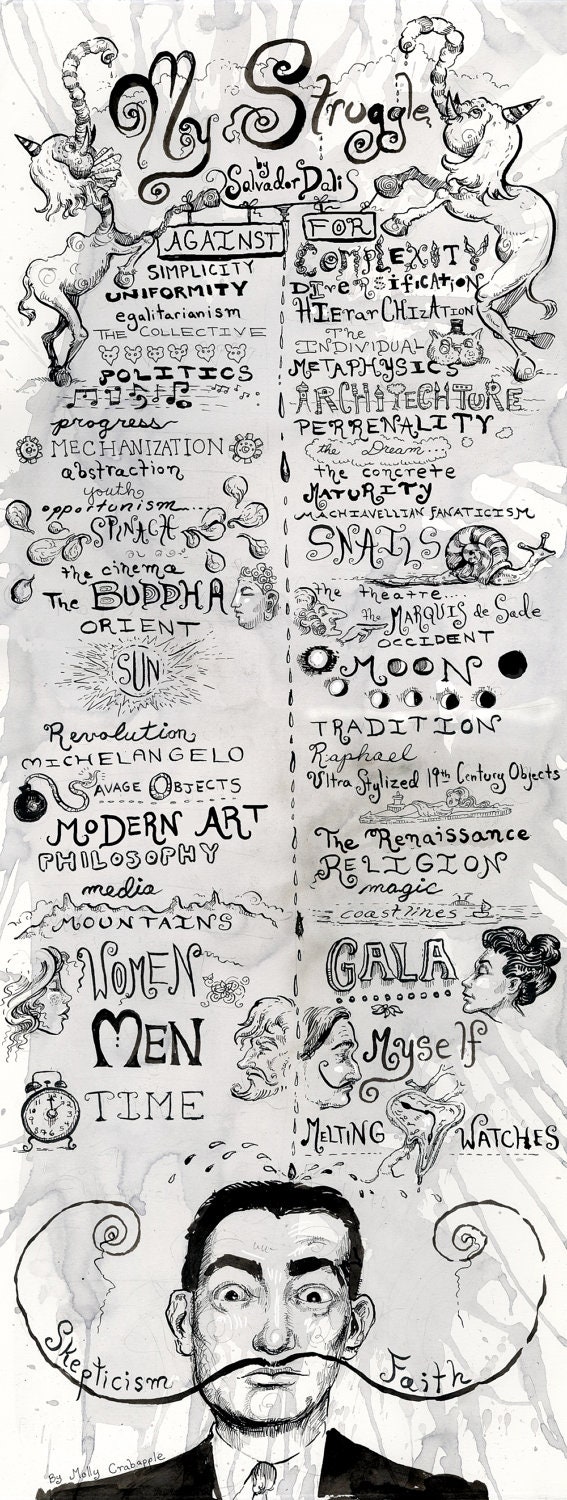 My Struggle
by
Salvador Dali
AGAINST
SIMPLICITY
UNIFORMITY
egalitarianism
THE COLLECTIVE
POLITICS
progress
MECHANIZATION
abstraction
youth
opportunism....
SPINACH
the cinema
The BUDDHA
ORIENT
SUN
Revolution
MICHELANGELO
SAVAGE OBJECTS
MODERN ART
PHILOSOPHY
media
MOUNTAINS
WOMEN
MEN
TIME
FOR
COMPLEXITY
DIVERSIFICATION
HIErarCHIZATION
The
INDIVIDUAL
METAPHYSICS
ARCHITECHTURE
PERRENALITY
the Dream...
the concrete
MATURITY
MACHIAVELLIAN FANATICISM
SNAILS
the theatre....
the MARQUIS de Sade
OCCIDENT
MOON
TRADITION
Raphael
Ultra Stylized 19th Century Objects
The Renaissance
RELIGION
magic
coastlines
GALA
Myself
MELTING WATCHES
Skepticism
Faith
By Molly Crabapple